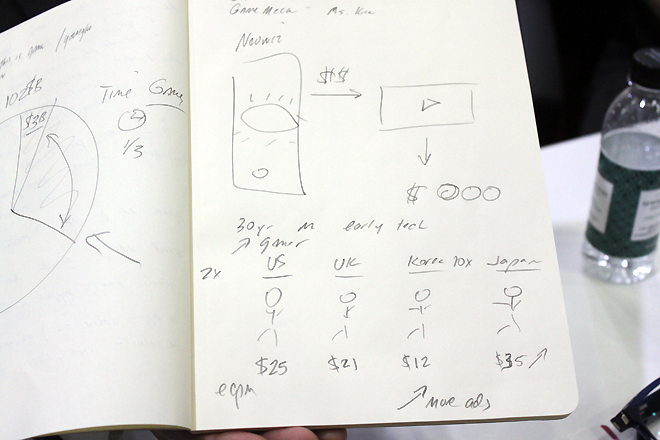 102$B
$3B
Time Game
1/3
Game Meca - Ms. Kim
Neowiz
$$
$
30yr in early tech
↗ gamer
2x US UK Korea 10x Japan
$25 $21 $12 $35 ↗
ecpm
↗ More ads